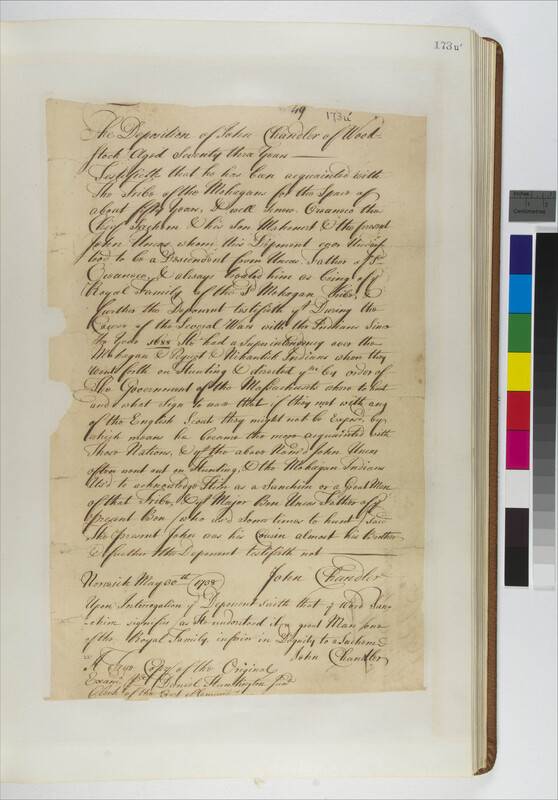 173u
49
173u
The Deposition of John Chandler of Wood-
stock Aged Seventy three Years
Testifieth that he has been acquainted with
The Tribe of the Mohegans for the Space of
about fifty Years, & well knew Owaneco the
Chief Sachem & his Son Mahomet & the present
John Uncas whom this Deponent ever understood
to be a Descendent from Uncas Father of sd
Owaneco, & always treated him as being of ye
Royal Family of the Sd Mohegan Tribe, &
further the Deponent testifieth yt During the
Course of the Several Wars with the Indians Since
the Year 1688 He had a Superintendency over the
Mohegan & Pequot & Nihantick Indians when they
went forth on Hunting & directed ym by order of
The Government of the Massachusets where to hunt
and what Sign to use that if they met with any
of the English Scouts they might not be Exposd, by
which means he became the more acquainted with
those Nations, & yt the above Nam'd John Uncas
often went out on Hunting, & the Mohagan Indians
Us'd to acknowledge Him as a Sunchim or a Great Man
of that Tribe, & yt Major Ben Uncas Father of ye
present Ben (who us'd some times to hunt) Said
The present John was his Cousin almost his Brother
& further the Deponent testifieth not
Norwich May 30th 1738 John Chandler
Upon Interrogation ye Deponent saith that ye word Sun-
chim signifies as He understood it, a great Man some
of the Royal Family, inferior in Dignity to a Sachem
John Chandler
A True Copy of the Original
Examd pr Daniel Huntington
Clerk of the
Inches
Centimetres